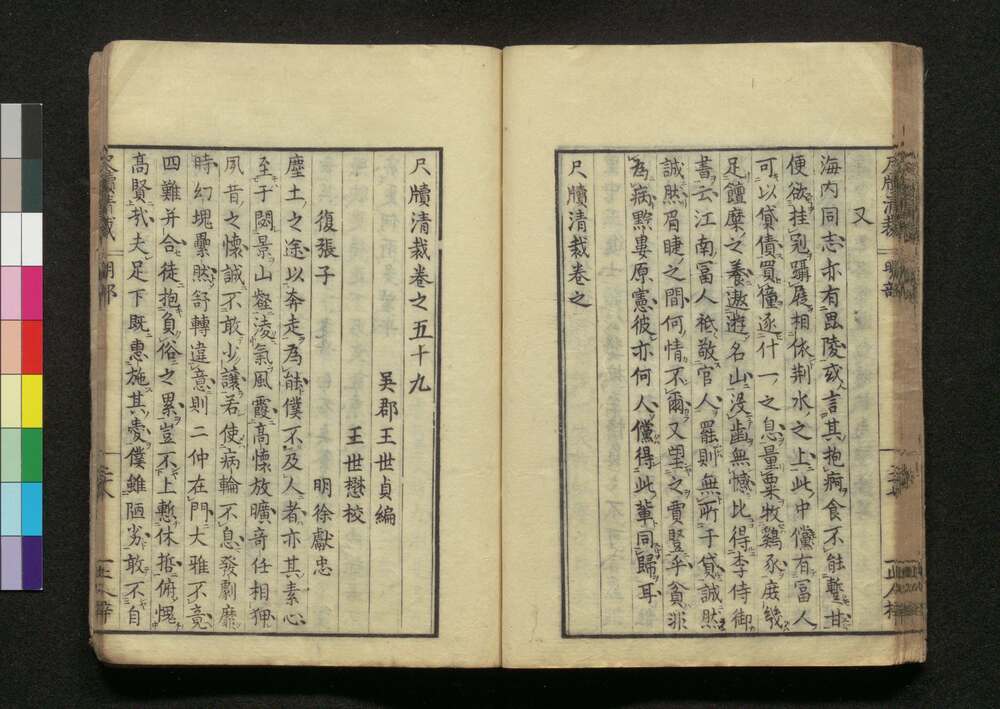 又
海内同志亦有毘陵或言其抱痾食不能蹔甘
便欲挂冠躡屐相依荆水之上此中儻有冨人
可以貸債買獞逐什一之息量粟牧鷄豕庻幾
足饘糜之養遨遊名山没齒無憾比得李侍御
書云江南冨人秪敬官人罷則無所于貸誠然
誠然眉睫之間何情不爾又望之賈豎乎貧非
為病黔婁原憲彼亦何人儻得此輩同歸耳
尺牘清裁卷之
尺牘清裁卷之五十九
吳郡王世貞編
王世懋校
復張子
明徐獻忠
塵土之途以奔走為能僕不及人者亦其素心
至于閟景山齾淩氣風霞高懷放曠竒任相狎
夙昔之懷誠不敢少讓若使病輪不息發劇靡
時幻塊纍然舒轉違意則二仲在門大雅不竟
四難并合徒抱負俗之累豈不上慙休哲俯愧
高賢哉夫足下既惠施其愛僕雖陋劣敢不自
尺牘清裁
明部